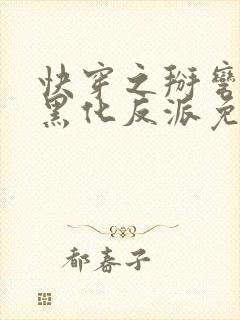 快穿之掰弯
黑化反派免
都春子